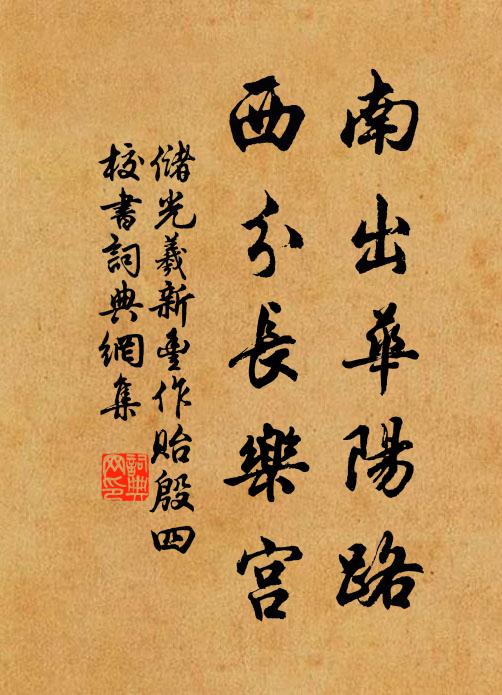 南出華陽路
西分長樂宮
儲光羲新豐作貽殷四
校書詞典網集
詞典
网印